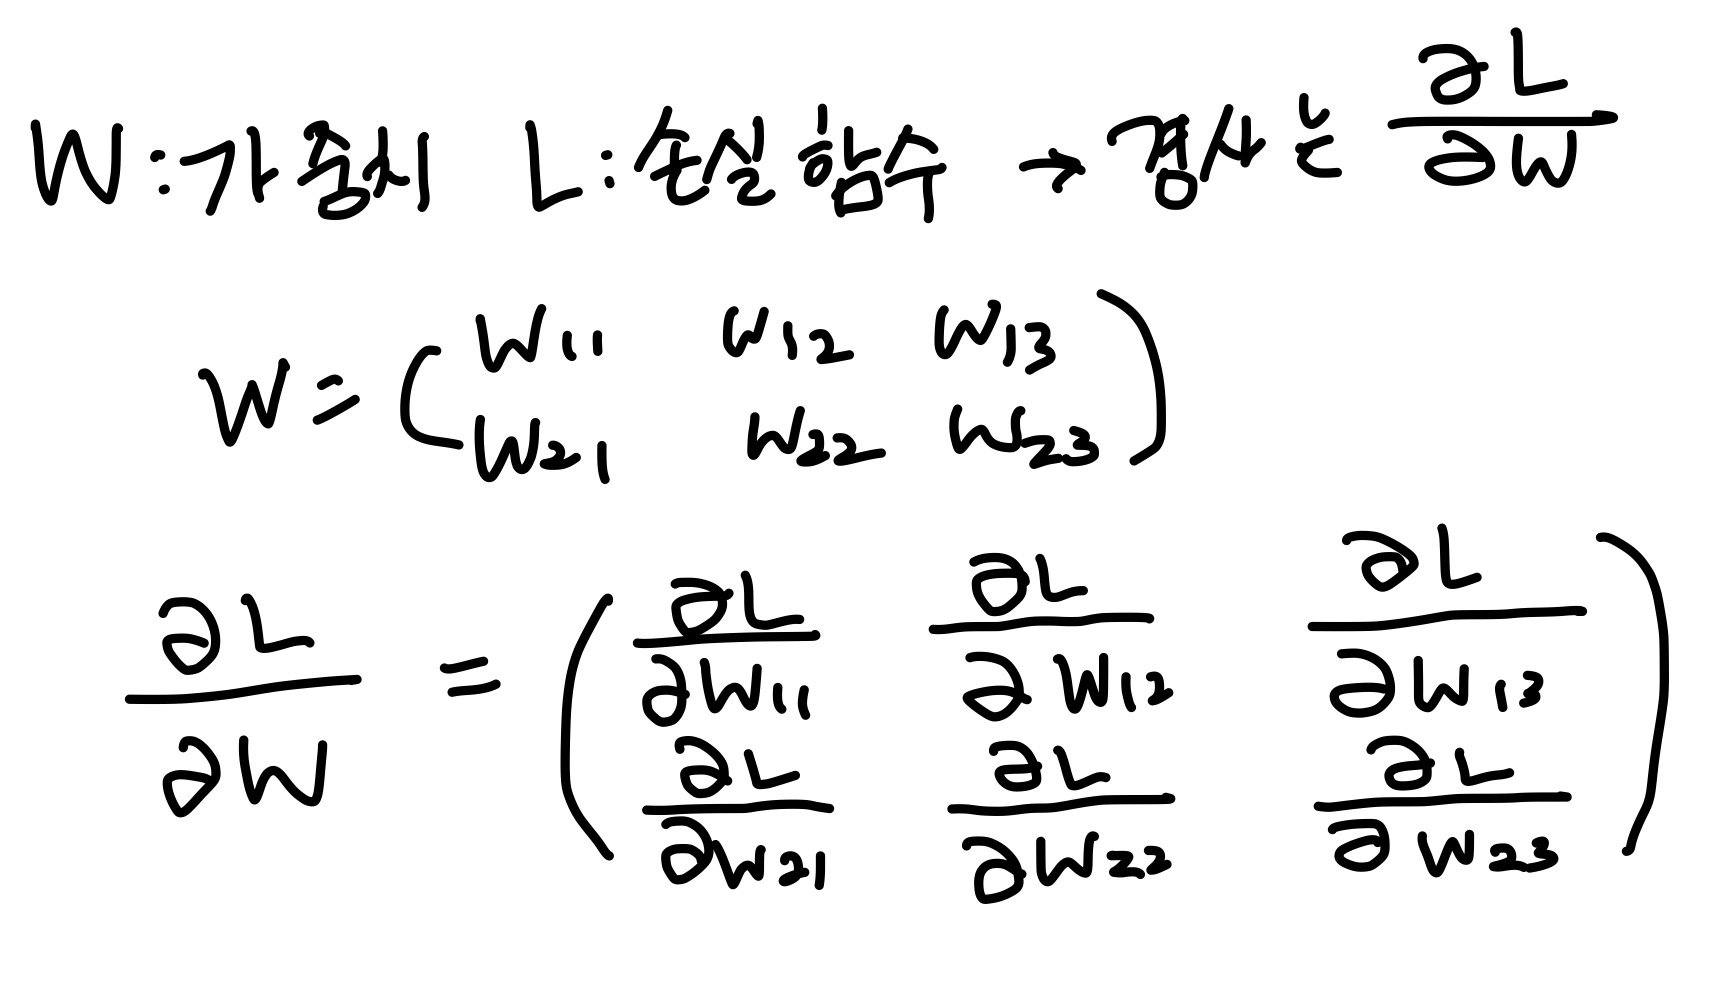 W:가중치 L:손실함수 → 경사는 ∂L/∂W
W = (W11 W12 W13
W21 W22 W23)
∂L/∂W = (∂L/∂W11 ∂L/∂W12 ∂L/∂W13
∂L/∂W21 ∂L/∂W22 ∂L/∂W23)